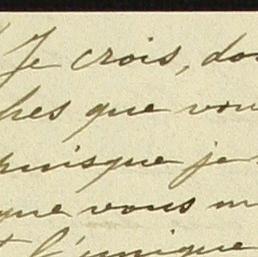 Je crois, do
hes que vou
puisque je
que vous m
l'unique